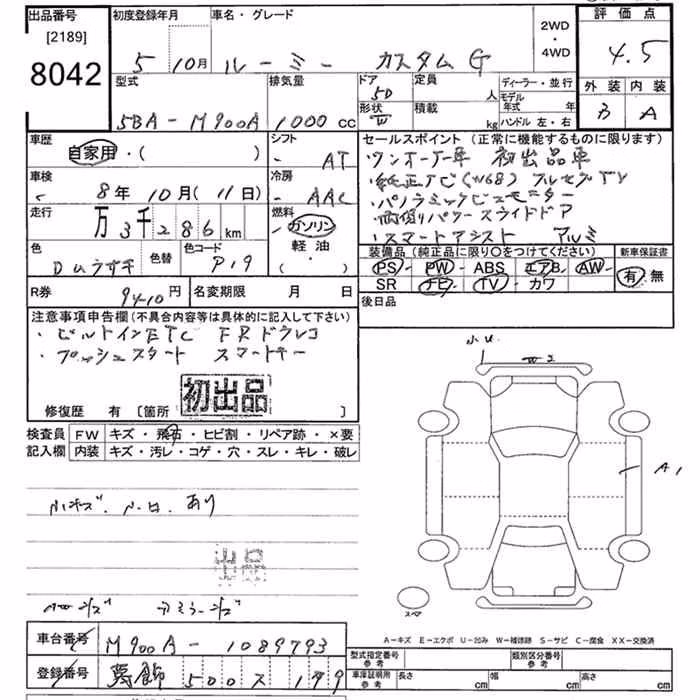 出品番号
[2189]
8042
初度登録年月
5 10月
車名・グレード
ルーミー カスタムG
2WD
・
4WD
評価点
4.5
外装 内装
B A
型式
5BA-M900A
排気量
1000 cc
ドア
5D
形状
定員
人
積載
kg
ディーラー・並行
モデル
年式 年
ハンドル 左・右
車歴
自家用・( )
シフト
- AT
車検
8年 10月(11日)
冷房
- AAC
走行
万3千286 km
燃料
ガソリン
軽油
・( )
色
色替
色コード
P19
セールスポイント (正常に機能するものに限ります)
・ワンオーナー車 初出品車
・純正ナビ(W68) フルセグTV
・パノラミックビューモニター
・両側パワースライドドア
・スマートアシスト アルミ
装備品(純正品に限り〇をつけてください)
PS・PW・ABS エアB・AW・
SR ナビ・TV・カワ
新車保証書
有・無
R券
9410円
名変期限 月 日
後日品
注意事項申告欄(不具合内容等は具体的に記入して下さい)
・ビルトインETC FRドラレコ
・プッシュスタート スマートキー
初出品
修復歴 有 [箇所 ]
検査員
記入欄
FW キズ・飛石・ヒビ割・リペア跡・×要
内装 キズ・汚レ・コゲ・穴・スレ・キレ・破レ
小キズ、小凹、あり
出品
A1
スペア
A-キズ E-エクボ U-凹み W-補修跡 S-サビ C-腐食 XX-交換済
車台番号
M900A-1089793
登録番号
500ス179
型式指定番号
参考
類別区分番号
参考
車庫証明用
参考
長さ cm
幅 cm
高さ cm